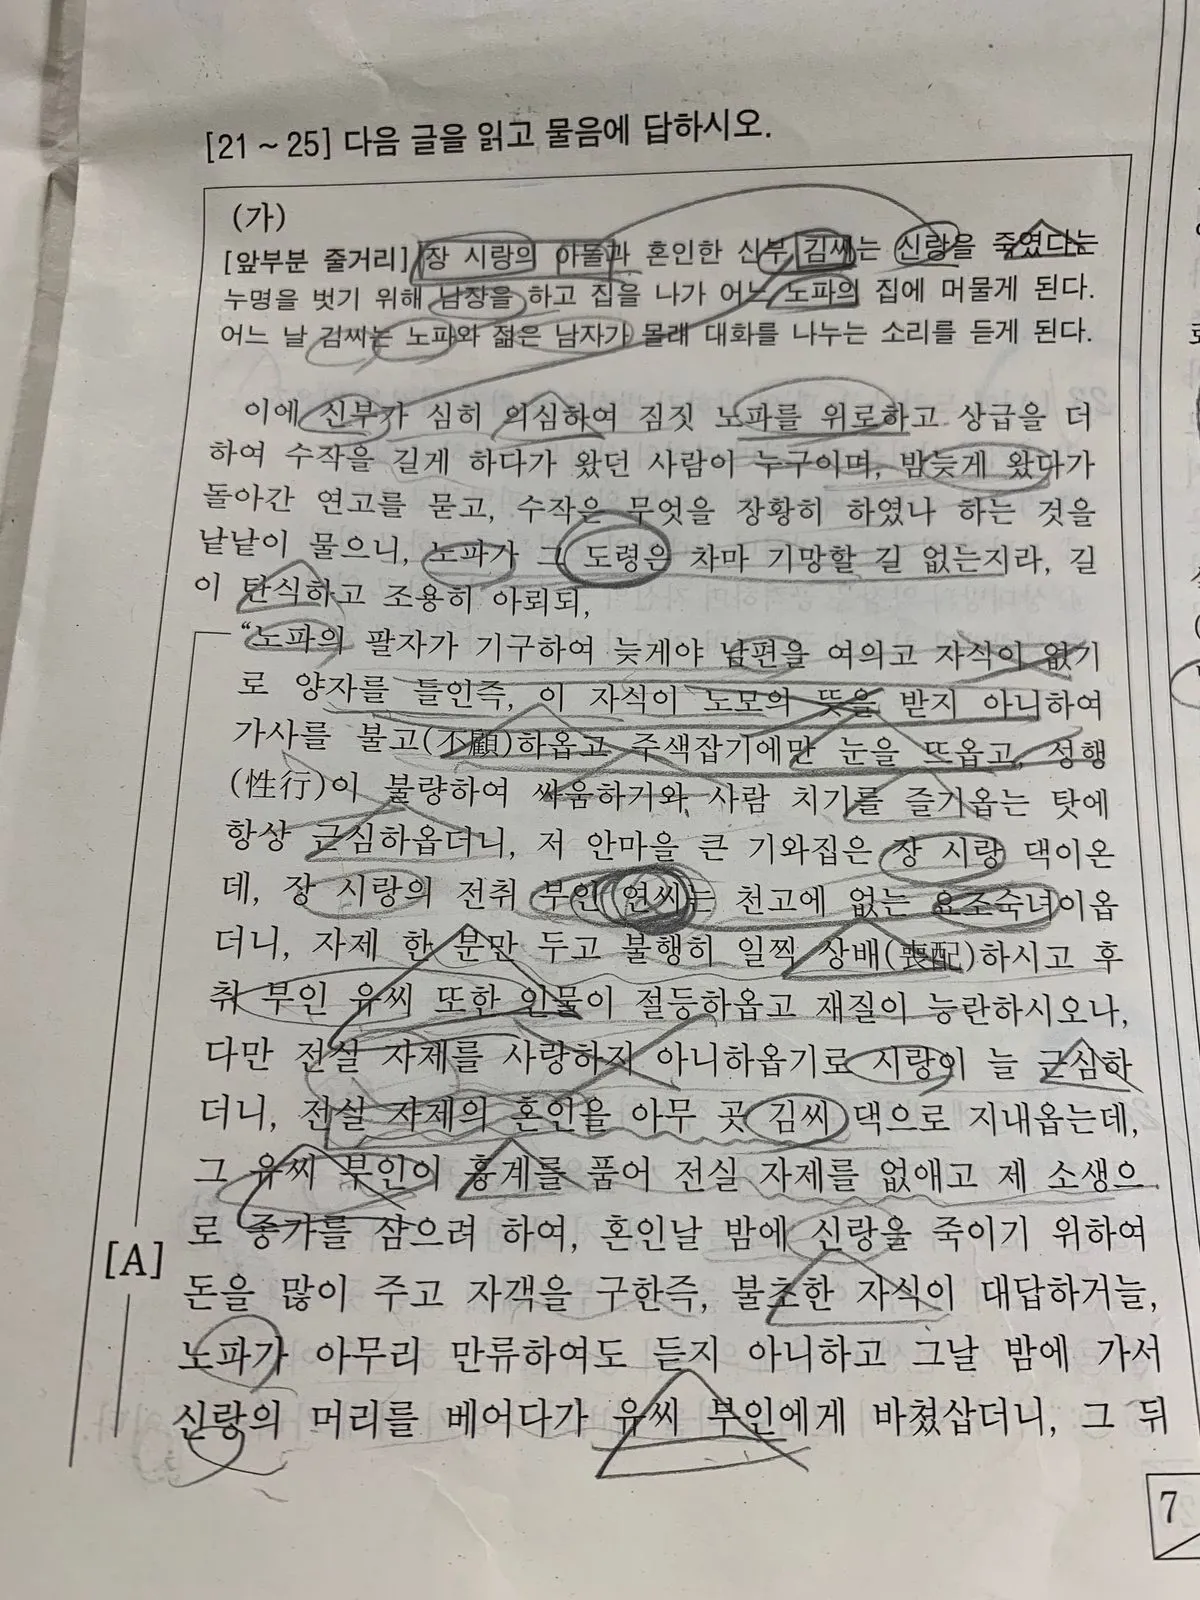 [21～25] 다음 글을 읽고 물음에 답하시오.
(가)
[앞부분 줄거리] 장 시랑의 아들과 혼인한 신부 김씨는 신랑을 죽였다는
누명을 벗기 위해 남장을 하고 집을 나가 어느 노파의 집에 머물게 된다.
어느 날 김씨는 노파와 젊은 남자가 몰래 대화를 나누는 소리를 듣게 된다.
이에 신부가 심히 의심하여 짐짓 노파를 위로하고 상급을 더
하여 수작을 길게 하다가 왔던 사람이 누구이며, 밤늦게 왔다가
돌아간 연고를 묻고, 수작은 무엇을 장황히 하였나 하는 것을
낱낱이 물으니, 노파가 그 도령은 차마 기망할 길 없는지라, 길
이 탄식하고 조용히 아뢰되,
“노파의 팔자가 기구하여 늦게야 남편을 여의고 자식이 없기
로 양자를 들인즉, 이 자식이 노모의 뜻을 받지 아니하여
가사를 불고(不顧)하옵고 주색잡기에만 눈을 뜨옵고, 성행
(性行)이 불량하여 싸움하기와 사람 치기를 즐기옵는 탓에
항상 근심하옵더니, 저 안마을 큰 기와집은 장 시랑 댁이온
데, 장 시랑의 전취 부인 연씨는 천고에 없는 요조숙녀이옵
더니, 자제 한 분만 두고 불행히 일찍 상배(喪配)하시고 후
취 부인 유씨 또한 인물이 절등하옵고 재질이 능란하시오나,
다만 전실 자제를 사랑하지 아니하옵기로 시랑이 늘 근심하
더니, 전실 자제의 혼인을 아무 곳 김씨 댁으로 지내옵는데,
그 유씨 부인이 흉계를 품어 전실 자제를 없애고 제 소생으
로 종가를 삼으려 하여, 혼인날 밤에 신랑을 죽이기 위하여
[A]
돈을 많이 주고 자객을 구한즉, 불초한 자식이 대답하거늘,
노파가 아무리 만류하여도 듣지 아니하고 그날 밤에 가서
신랑의 머리를 베어다가 유씨 부인에게 바쳤삽더니, 그 뒤
7